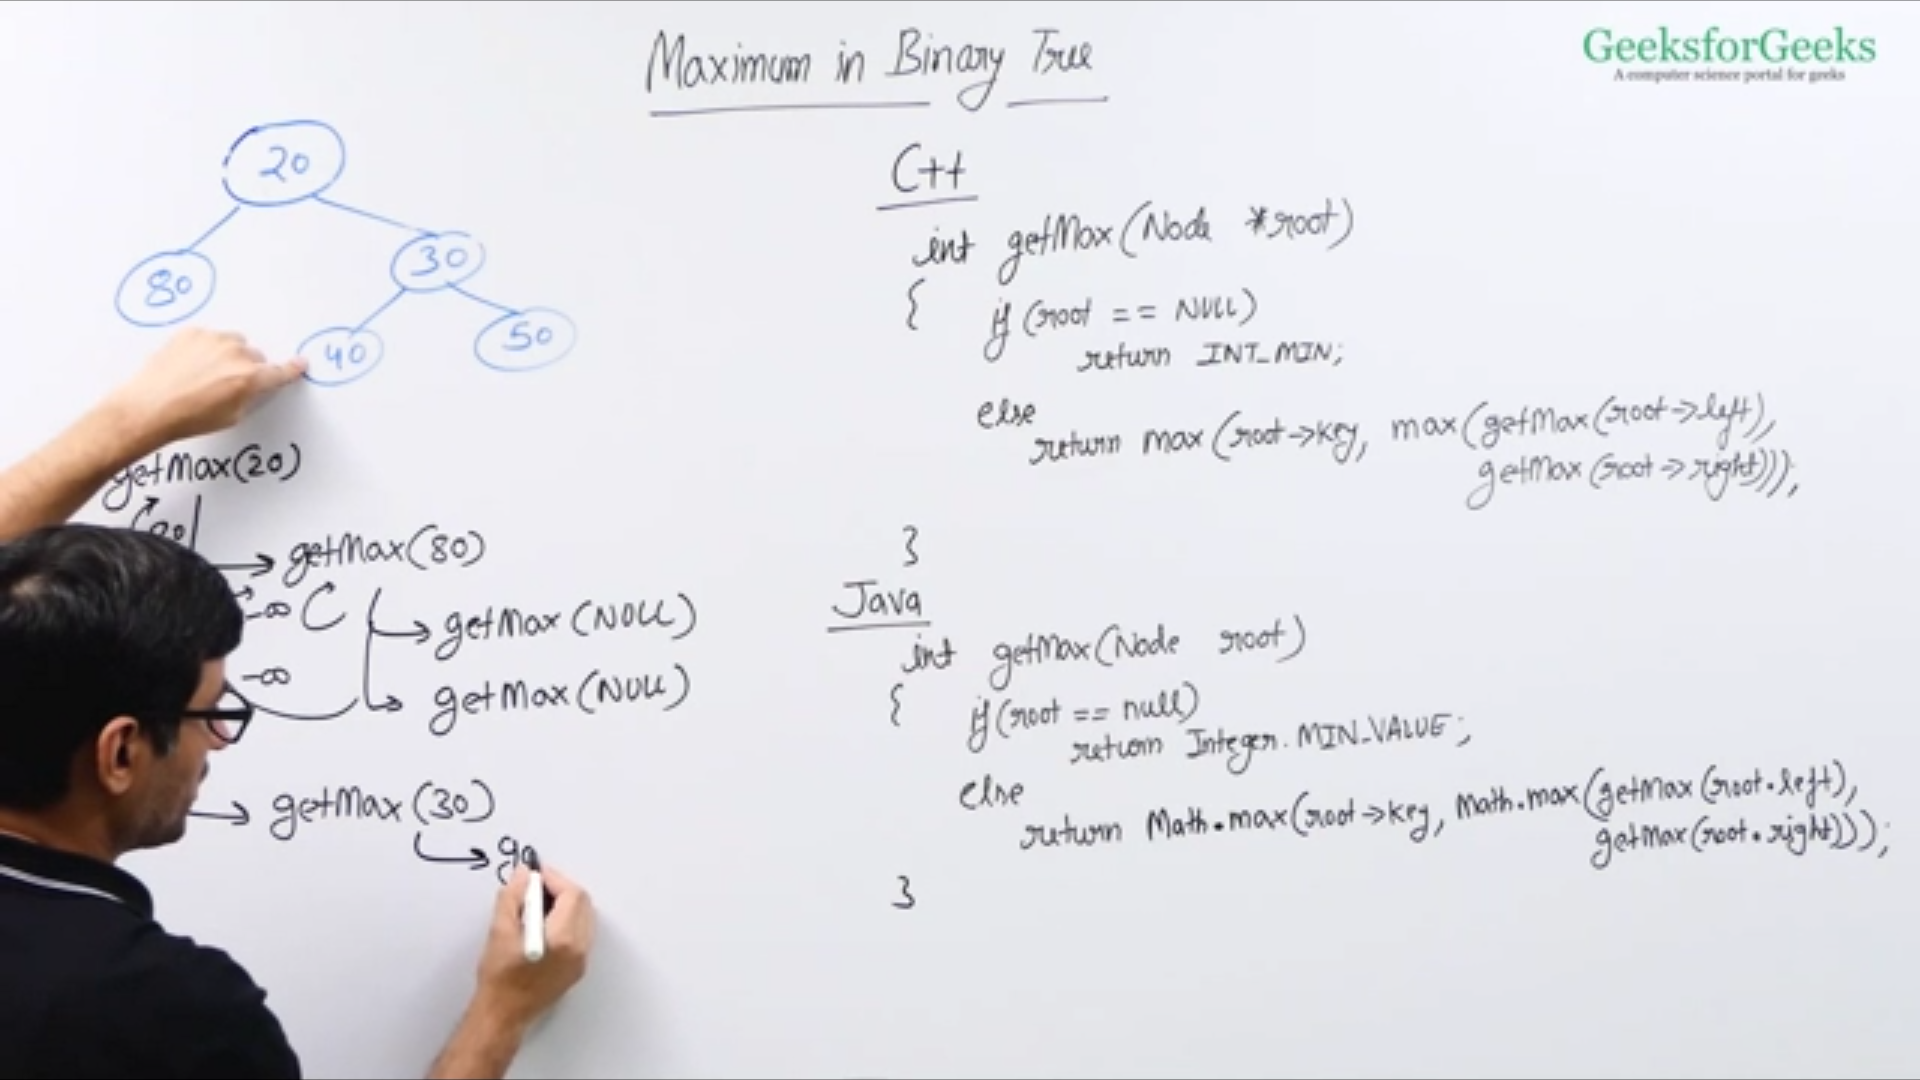 Maximum in Binary Tree
GeeksforGeeks
A computer science portal for geeks
20
80
30
40
50
getMax(20)
getMax(80)
-∞
getMax(NULL)
-∞
getMax(NULL)
getMax(30)
C++
int getMax(Node *root)
{ if (root == NULL)
return INT_MIN;
else
return max(root->key, max(getMax(root->left),
getMax(root->right)));
}
Java
int getMax(Node root)
{ if(root == null)
return Integer.MIN_VALUE;
else
return Math.max(root->key, Math.max(getMax(root.left),
getMax(root.right)));
}